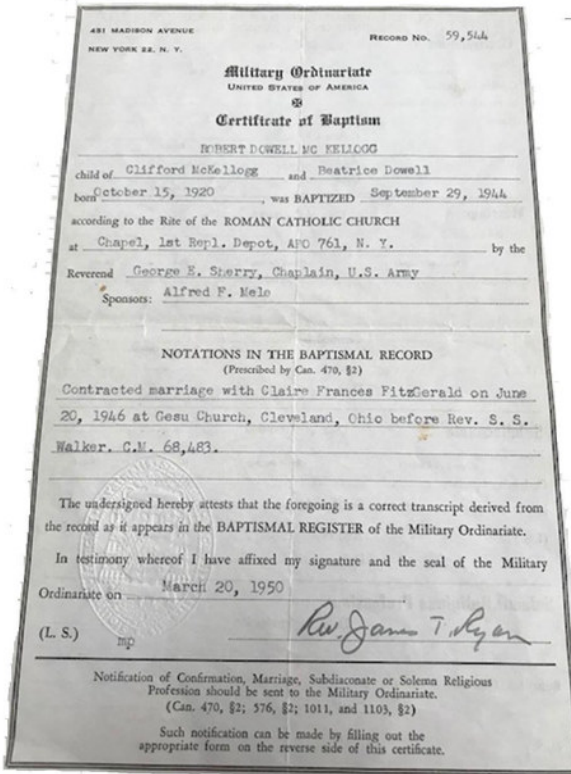 451 MADISON AVENUE
RECORD No. 59,544
NEW YORK 22, N. Y.
Military Ordinariate
UNITED STATES OF AMERICA
Certificate of Baptism
ROBERT DOWELL MC KELLOGG
child of Clifford McKellogg and Beatrice Dowell
born October 15, 1920, was BAPTIZED September 29, 1944
according to the Rite of the ROMAN CATHOLIC CHURCH
at Chapel, 1st Repl. Depot, APO 761, N. Y. by the
Reverend George E. Sherry, Chaplain, U.S. Army
Sponsors: Alfred F. Mele
NOTATIONS IN THE BAPTISMAL RECORD
(Prescribed by Can. 470, §2)
Contracted marriage with Claire Frances FitzGerald on June
20, 1946 at Gesu Church, Cleveland, Ohio before Rev. S. S.
Walker. C.M. 68,483.
The undersigned hereby attests that the foregoing is a correct transcript derived from
the record as it appears in the BAPTISMAL REGISTER of the Military Ordinariate.
In testimony whereof I have affixed my signature and the seal of the Military
Ordinariate on March 20, 1950
(L. S.) mp Rev. James T. Ryan
Notification of Confirmation, Marriage, Subdiaconate or Solemn Religious
Profession should be sent to the Military Ordinariate.
(Can. 470, §2; 576, §2; 1011, and 1103, §2)
Such notification can be made by filling out the
appropriate form on the reverse side of this certificate.